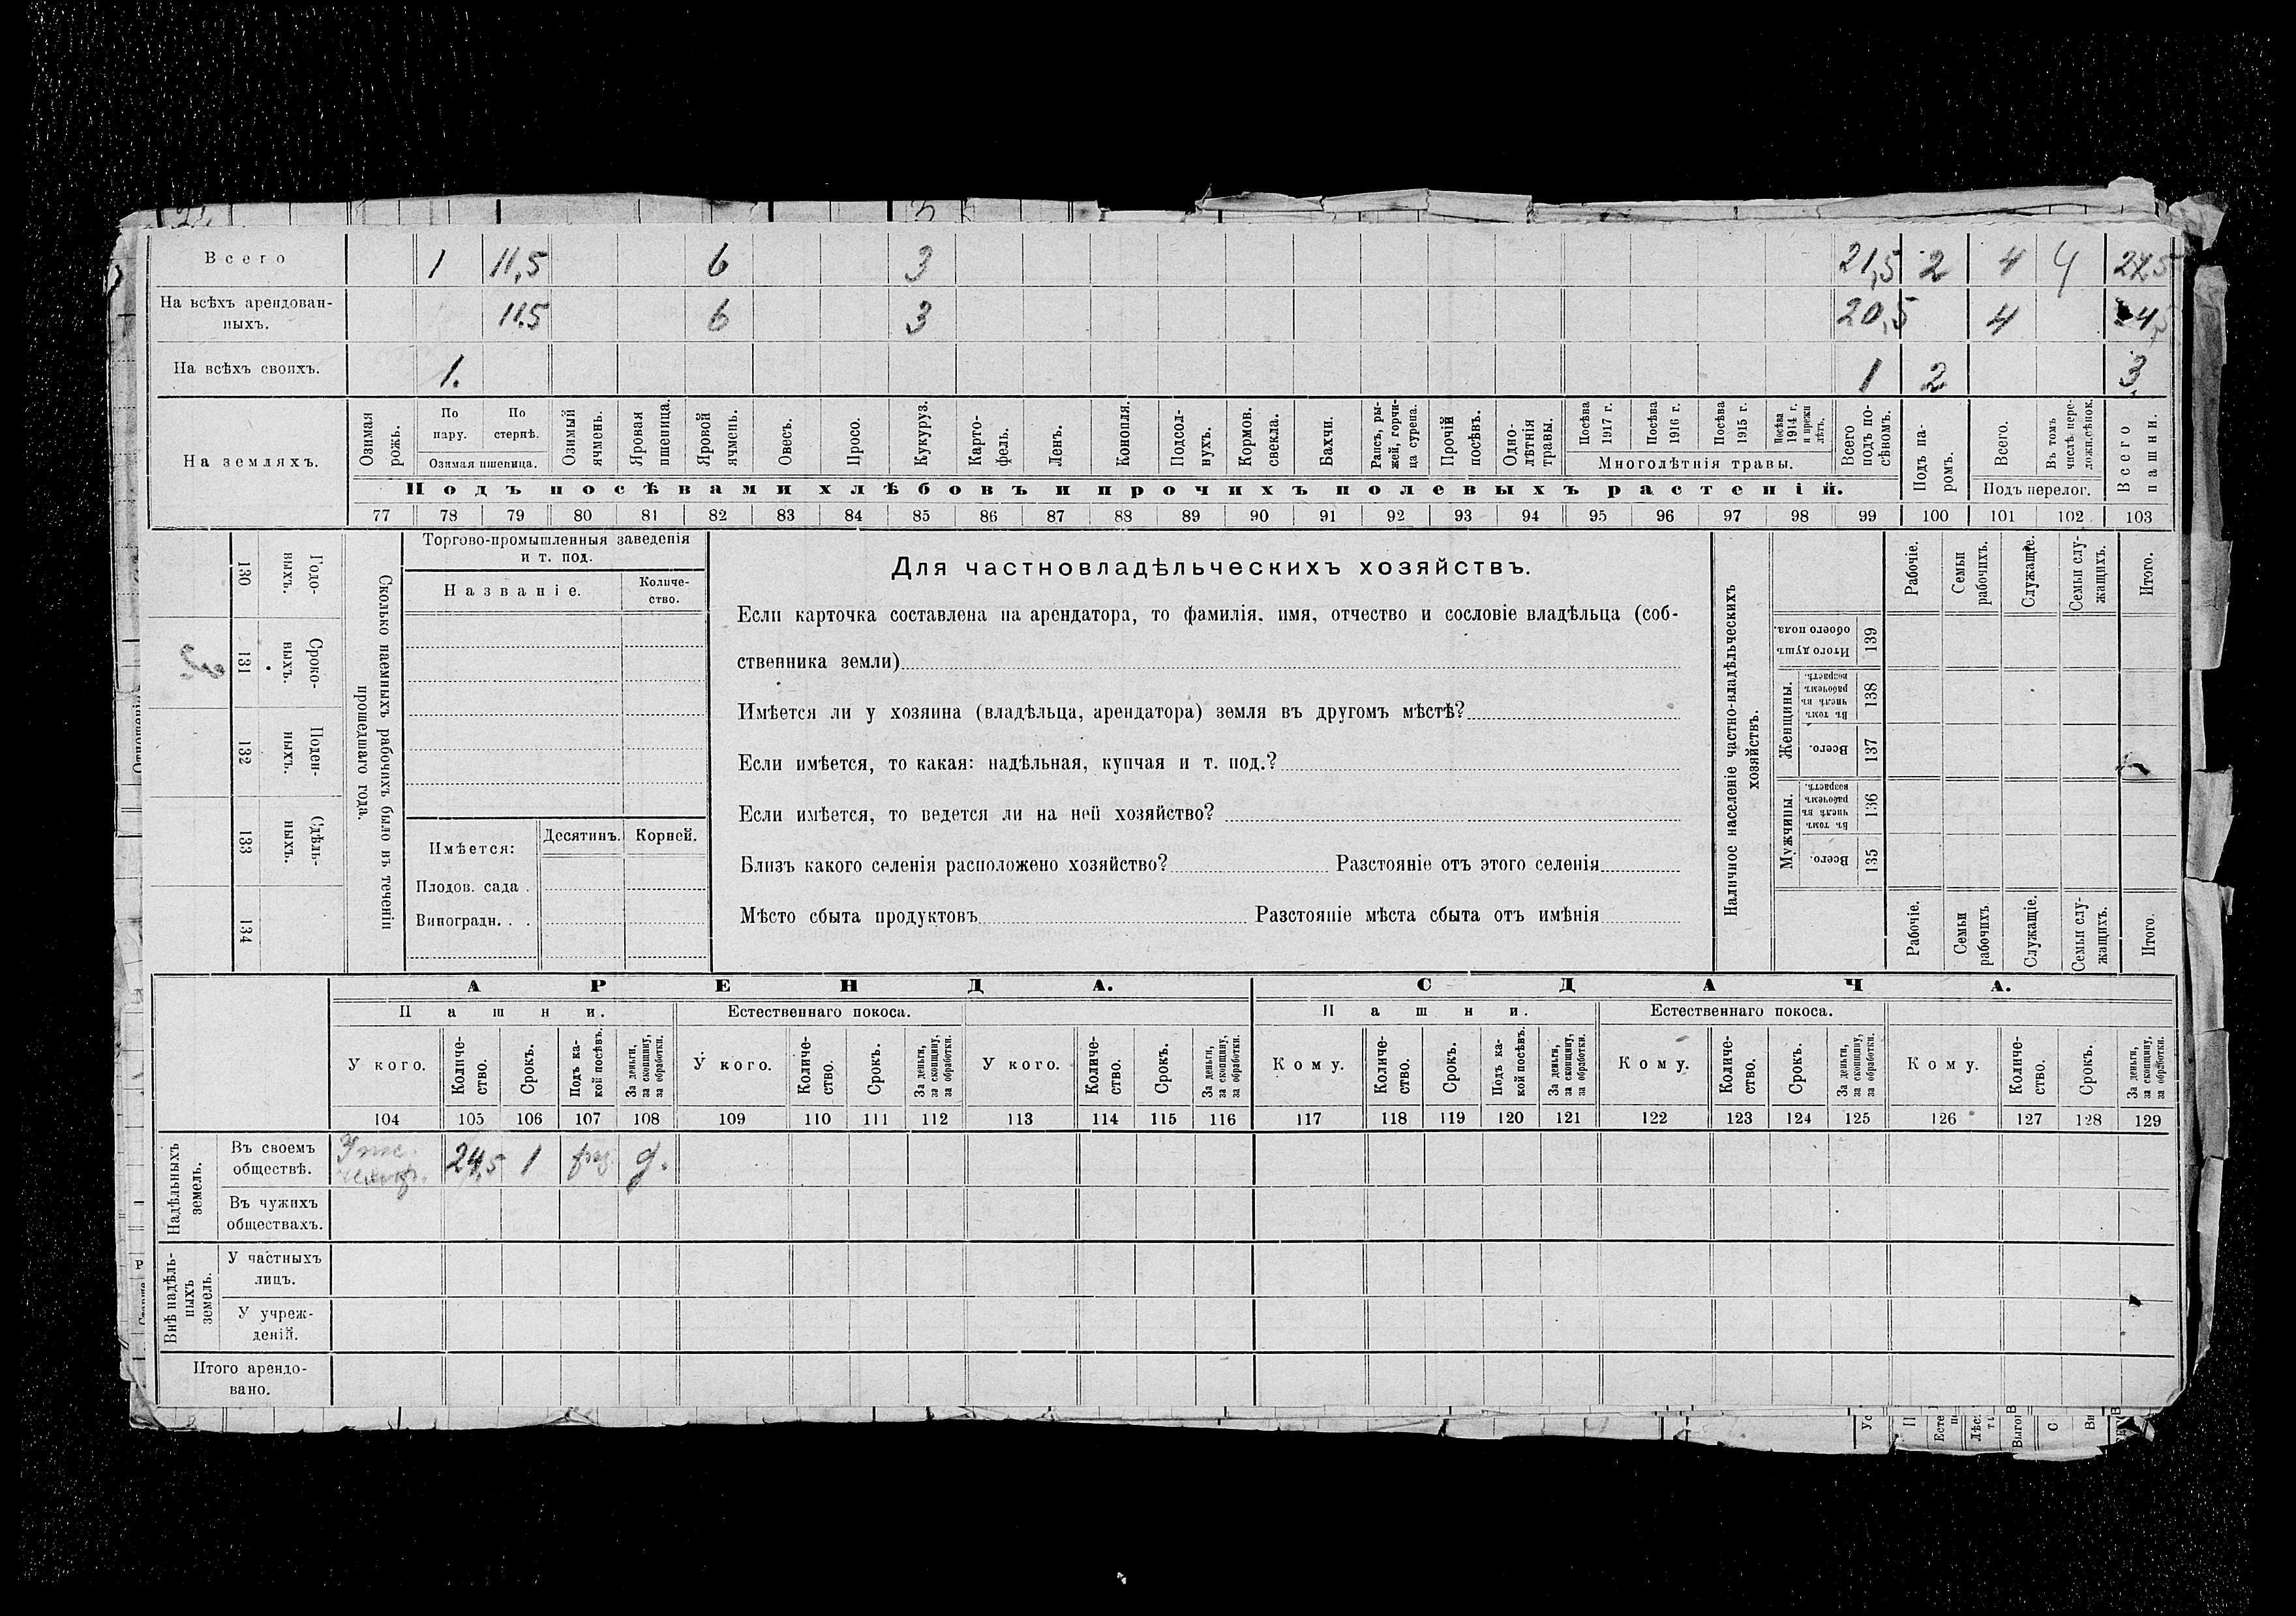 Всего 1 11,5 6 3 21,5 2 4 4 27,5
На всѣхъ арендован-
ныхъ. 11,5 6 3 20,5 4 24,5
На всѣхъ своихъ. 1. 1 2 3
На земляхъ.
Озимая
рожь.
По
пару.
По
стернѣ.
Озимая пшеница.
Озимый
ячмень.
Яровая
пшеница.
Яровой
ячмень.
Овесъ.
Просо.
Кукуруз.
Карто-
фель.
Ленъ.
Конопля.
Подсол-
нухъ.
Кормов.
свекла.
Бахчи.
Рапсъ, ры-
жей, горчи-
ца сурепа.
Прочій
посѣвъ.
Одно-
лѣтнія
травы.
Посѣва
1917 г.
Посѣва
1916 г.
Посѣва
1915 г.
Посѣва
1914 г.
и прежн
лѣтъ.
Многолѣтнія травы.
Всего
подъ по-
сѣвомъ.
Подъ па-
ромъ.
Всего.
Въ томъ
числѣ пере-
ложн.сѣнок.
Подъ перелог.
Всего
пашни.
Подъ посѣвами хлѣбовъ и прочихъ полевыхъ растеній.
77 78 79 80 81 82 83 84 85 86 87 88 89 90 91 92 93 94 95 96 97 98 99 100 101 102 103
Сколько наемныхъ рабочихъ было въ теченіи
прошедшаго года.
Годо-
выхъ.
130
Сроко-
выхъ.
131
Поден-
ныхъ.
132
Сдѣль-
ныхъ.
133
134
Торгово-промышленныя заведенія
и т. под.
Названіе.
Количе-
ство.
Имѣется:
Десятинъ.
Корней.
Плодов. сада .
Виноградн. . .
Для частновладѣльческихъ хозяйствъ.
Если карточка составлена на арендатора, то фамилія, имя, отчество и сословіе владѣльца (соб-
ственника земли)
Имѣется ли у хозяина (владѣльца, арендатора) земля въ другомъ мѣстѣ?
Если имѣется, то какая: надѣльная, купчая и т. под.?
Если имѣется, то ведется ли на ней хозяйство?
Близъ какого селенія расположено хозяйство? Разстояніе отъ этого селенія
Мѣсто сбыта продуктовъ Разстояніе мѣста сбыта отъ имѣнія
Наличное населеніе частно-владѣльческихъ
хозяйствъ.
Рабочіе.
Семьи
рабочихъ.
Служащіе.
Семьи слу-
жащихъ.
Итого.
Итого душъ
обоего пола.
139
Женщины.
Въ томъ
числѣ въ
рабочемъ
возрастѣ.
138
Всего.
137
Мужчины.
Въ томъ
числѣ въ
рабочемъ
возрастѣ.
136
Всего.
135
Рабочіе.
Семьи
рабочихъ.
Служащіе.
Семьи слу-
жащихъ.
Итого.
АРЕНДА.
СДАЧА.
Пашни.
Естественнаго покоса.
Пашни.
Естественнаго покоса.
У кого.
Количе-
ство.
Срокъ.
Подъ ка-
кой посѣвъ.
За деньги,
за скопщину,
за обработки.
У кого.
Количе-
ство.
Срокъ.
За деньги,
за скопщину,
за обработки.
У кого.
Количе-
ство.
Срокъ.
За деньги,
за скопщину,
за обработки.
Кому.
Количе-
ство.
Срокъ.
Подъ ка-
кой посѣвъ.
За деньги,
за скопщину,
за обработки.
Кому.
Количе-
ство.
Срокъ.
За деньги,
за скопщину,
за обработки.
Кому.
Количе-
ство.
Срокъ.
За деньги,
за скопщину,
за обработки.
104 105 106 107 108 109 110 111 112 113 114 115 116 117 118 119 120 121 122 123 124 125 126 127 128 129
Надѣльныхъ
земель.
Въ своемъ
обществѣ.
24,5 1 раз. д.
Въ чужихъ
обществахъ.
Внѣ надѣль-
ныхъ
земель.
У частныхъ
лицъ.
У учреж-
деній.
Итого арендо-
вано.